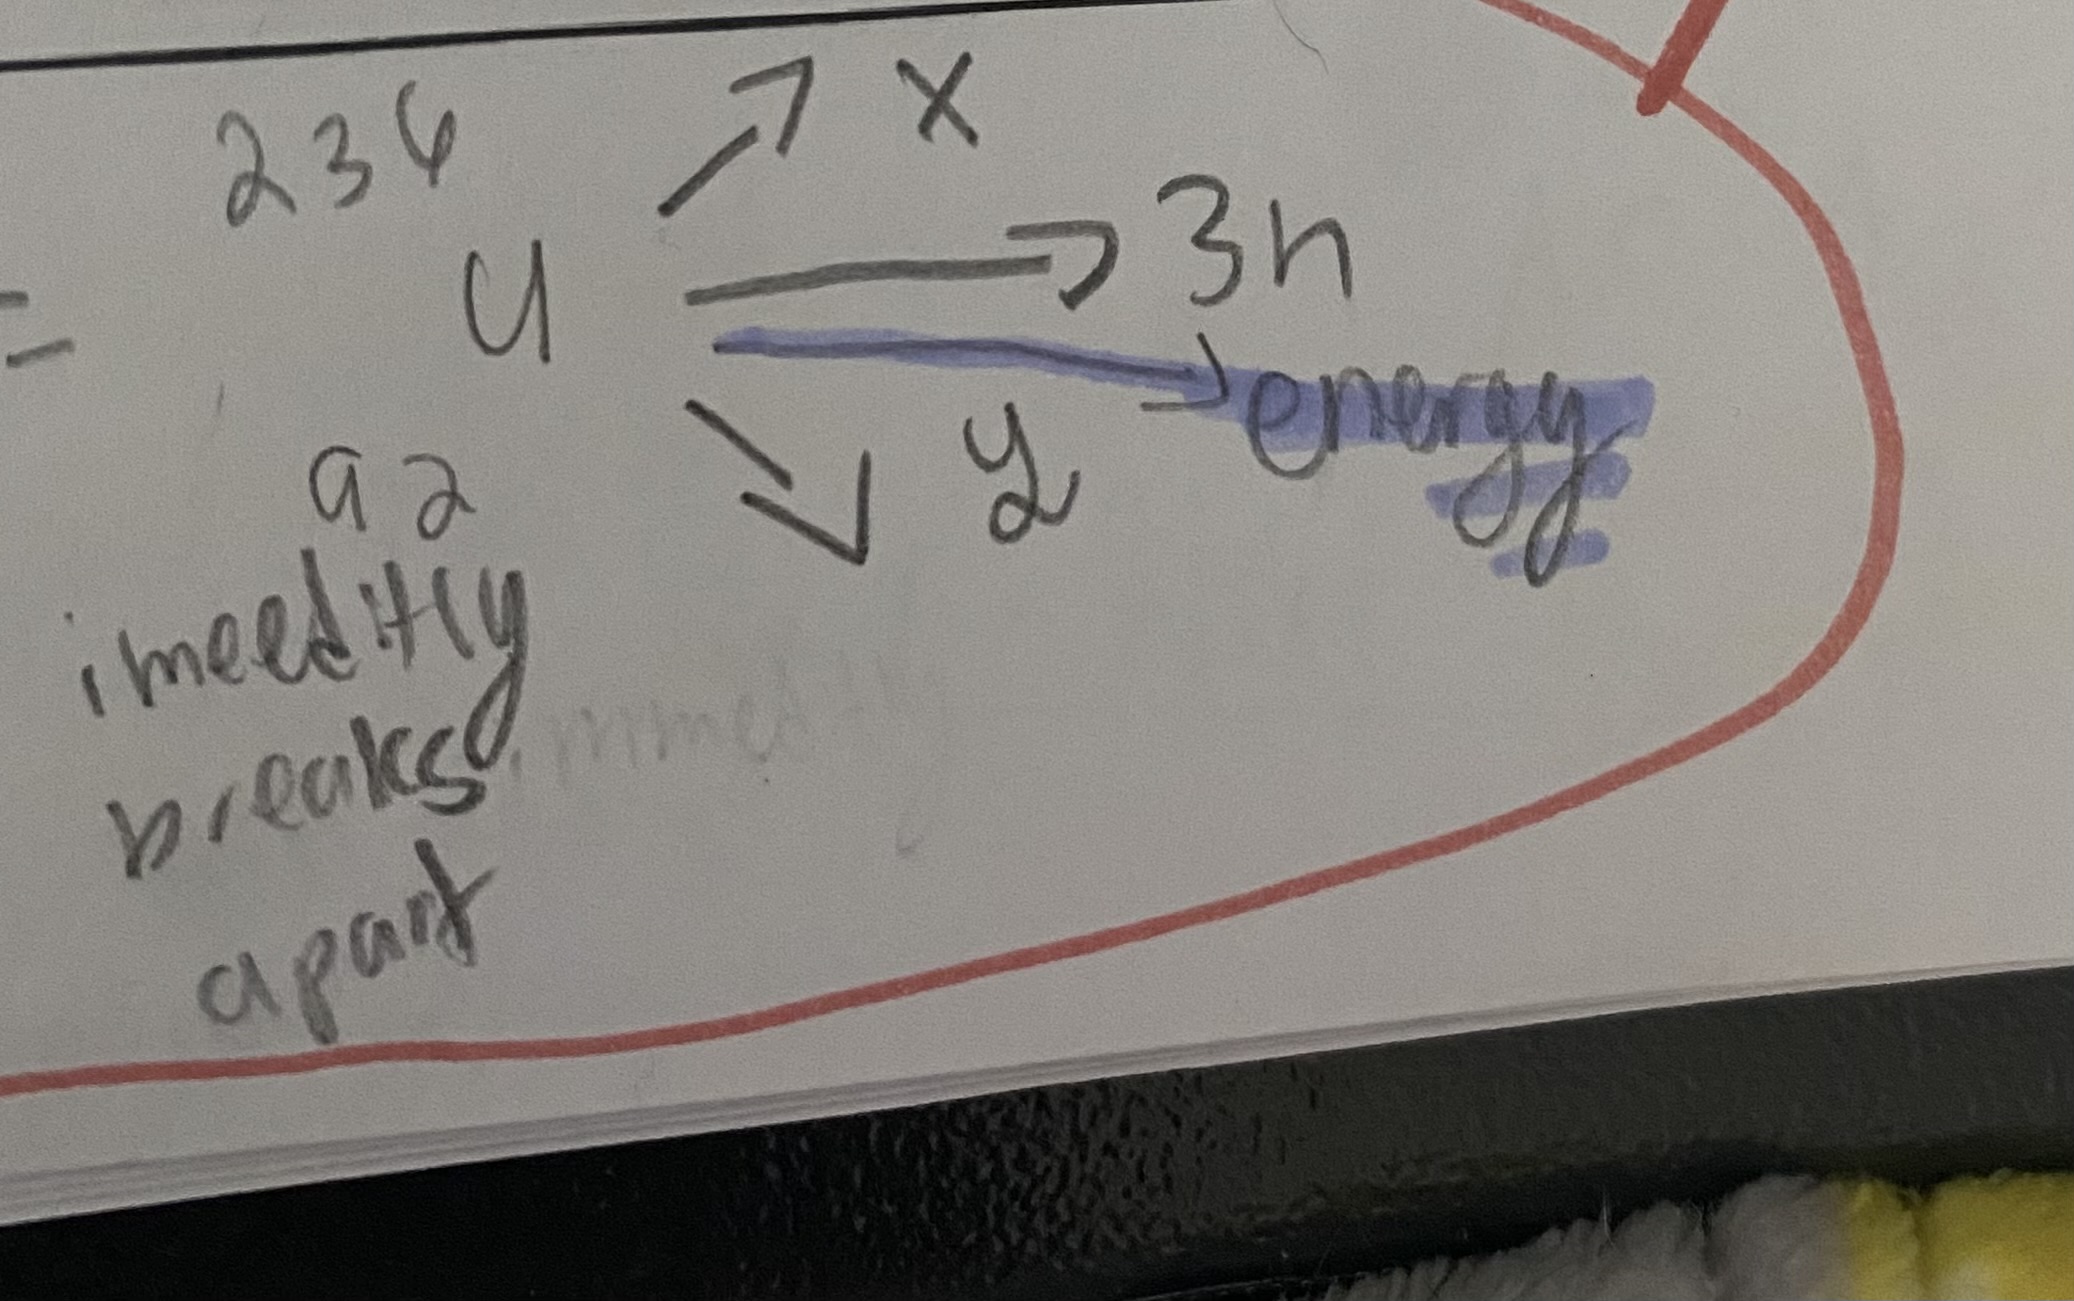 236
x
= U → 3n
→ energy
92
y
imeeditly
breaks
apart